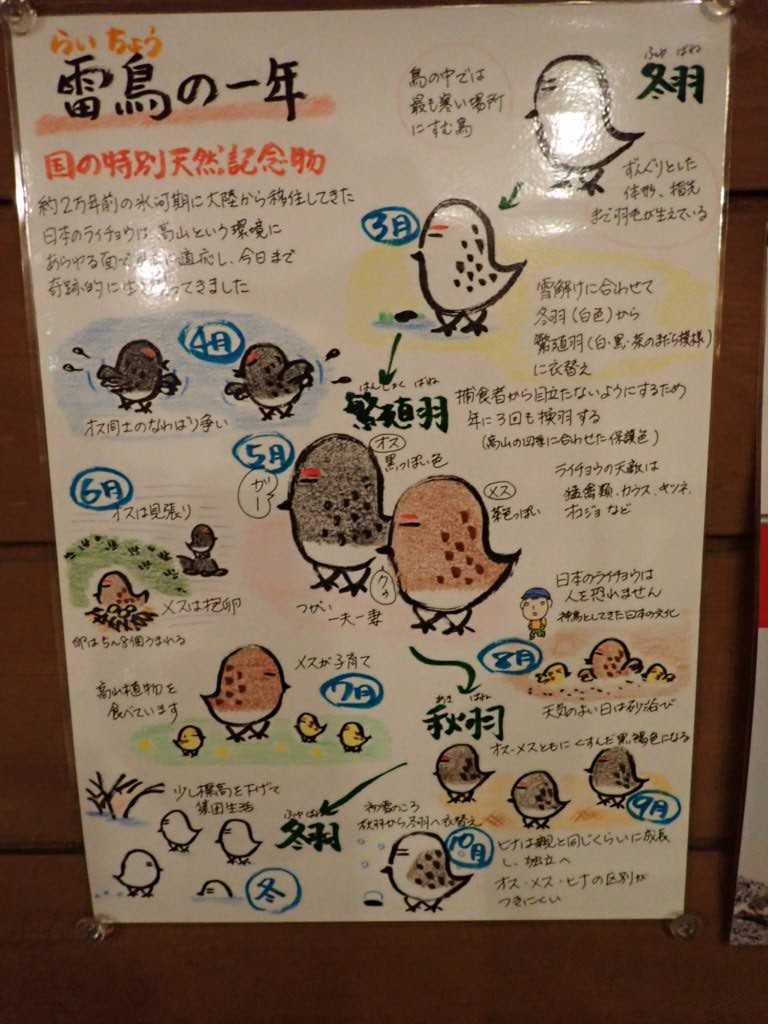 らいちょう
雷鳥の一年
国の特別天然記念物
約2万年前の氷河期に大陸から移住してきた
日本のライチョウは、高山という環境に
あらゆる面で 適応し、今日まで
奇跡的に生 ってきました
鳥の中では
最も寒い場所
にすむ鳥
ふゆ ばね
冬羽
ずんぐりとした
体形、指先
まで羽毛が生えている
3月
雪解けに合わせて
冬羽(白色)から
繁殖羽(白・黒・茶のまだら模様)
に衣替え
4月
オス同士のなわばり争い
はんしょく ばね
繁殖羽
捕食者から目立たないようにするため
年に3回も換羽する
(高山の四季に合わせた保護色)
ライチョウの天敵は
猛禽類、カラス、キツネ、
オコジョなど
5月
オス
黒っぽい色
ガー
メス
茶色っぽい
クゥ
つがい 一夫一妻
6月
オスは見張り
メスは抱卵
卵は5~8個うまれる
日本のライチョウは
人を恐れません
神鳥としてきた日本の文化
7月
メスが子育て
高山植物を
食べています
8月
天気のよい日は砂浴び
あき ばね
秋羽
オス・メスともにくすんだ黒褐色になる
9月
初雪のころ
秋羽から冬羽へ衣替え
10月
ヒナは親と同じくらいに成長
し、独立へ
オス・メス・ヒナの区別が
つきにくい
ふゆ ばね
冬羽
少し標高を下げて
集団生活
冬